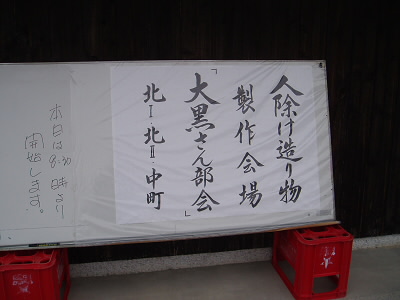 人除け造り物
製作会場
「大黒さん部会」
北Ⅰ・北Ⅱ・中町
本日は8:30時より
開始します。